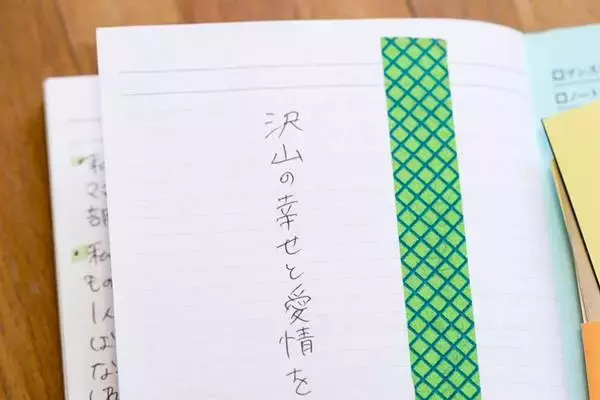 沢山の幸せと愛情を
ノート
私
マ
私
もの
1人
ば
な